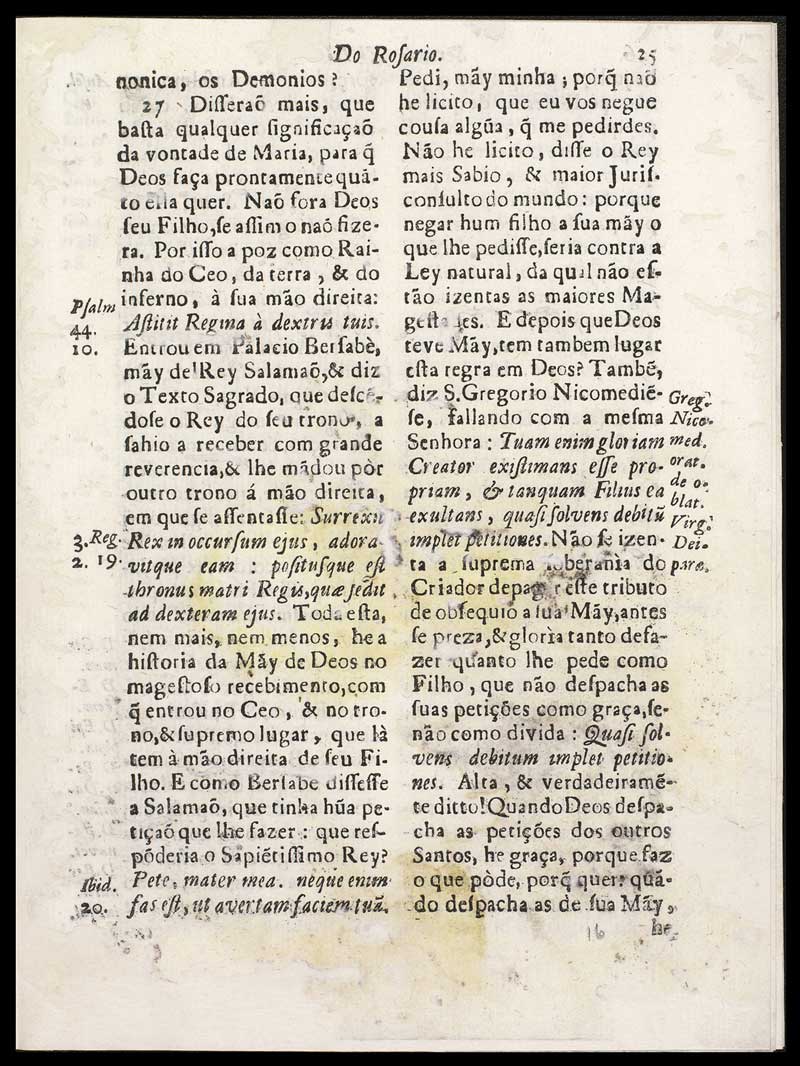 Do Roſario.
25
nonica, os Demonios?
27 Diſſeraõ mais, que
baſta qualquer ſignificaçaõ
da vontade de Maria, para q̃
Deos faça prontamente quã-
to ella quer. Naõ fora Deos
ſeu Filho, ſe aſſim o naõ fize-
ra. Por iſſo a poz como Rai-
nha do Ceo, da terra, & do
inferno, à ſua mão direita:
Aſtitit Regina à dextris tuis.
Entrou em Palacio Berſabè,
mãy de Rey Salamaõ, & diz
o Texto Sagrado, que deſcẽ-
doſe o Rey do ſeu trono, a
ſahio a receber com grande
reverencia, & lhe mãdou pòr
outro trono á mão direita,
em que ſe aſſentaſſe: Surrexit
Rex in occurſum ejus, adora-
vitque eam: poſituſque eſt
thronus matri Regis, quæ ſedit
ad dexteram ejus. Toda eſta,
nem mais, nem menos, he a
hiſtoria da Mãy de Deos no
mageſtoſo recebimento, com
q̃ entrou no Ceo, & no tro-
no, & ſupremo lugar, que là
tem à mão direita de ſeu Fi-
lho. E como Berſabe diſſeſſe
a Salamaõ, que tinha hũa pe-
tiçaõ que lhe fazer: que reſ-
põderia o Sapiẽtiſſimo Rey?
Pete, mater mea. neque enim
fas eſt, ut avertam faciem tuã.
Pſalm
44.
10.
3. Reg.
2. 19.
Ibid.
20.
Pedi, mãy minha; porq̃ naõ
he licito, que eu vos negue
couſa algũa, q̃ me pedirdes.
Não he licito, diſſe o Rey
mais Sabio, & maior Juriſ-
conſulto do mundo: porque
negar hum filho a ſua mãy o
que lhe pediſſe, ſeria contra a
Ley natural, da qual não eſ-
tão izentas as maiores Ma-
geſtades. E depois que Deos
teve Mãy, tem tambem lugar
eſta regra em Deos? Tambẽ,
diz S. Gregorio Nicomediẽ-
ſe, fallando com a meſma
Senhora: Tuam enim gloriam
Creator exiſtimans eſſe pro-
priam, & tanquam Filius ea
exultans, quaſi ſolvens debitũ
implet petitiones. Não ſe izen-
ta a ſuprema ſoberania do
Criador de pagar eſte tributo
de obſequio a ſua Mãy, antes
ſe preza, & gloria tanto defa-
zer quanto lhe pede como
Filho, que não deſpacha as
ſuas petições como graça, ſe-
não como divida: Quaſi ſol-
vens debitum implet petitio-
nes. Alta, & verdadeiramẽ-
te ditto! Quando Deos deſpa-
cha as petições dos outros
Santos, he graça, porque faz
o que pòde, porq̃ quer: quã-
do deſpacha as de ſua Mãy,
he
Greg.
Nico-
med.
orat.
de o-
blat.
Virg.
Dei-
paræ.
16